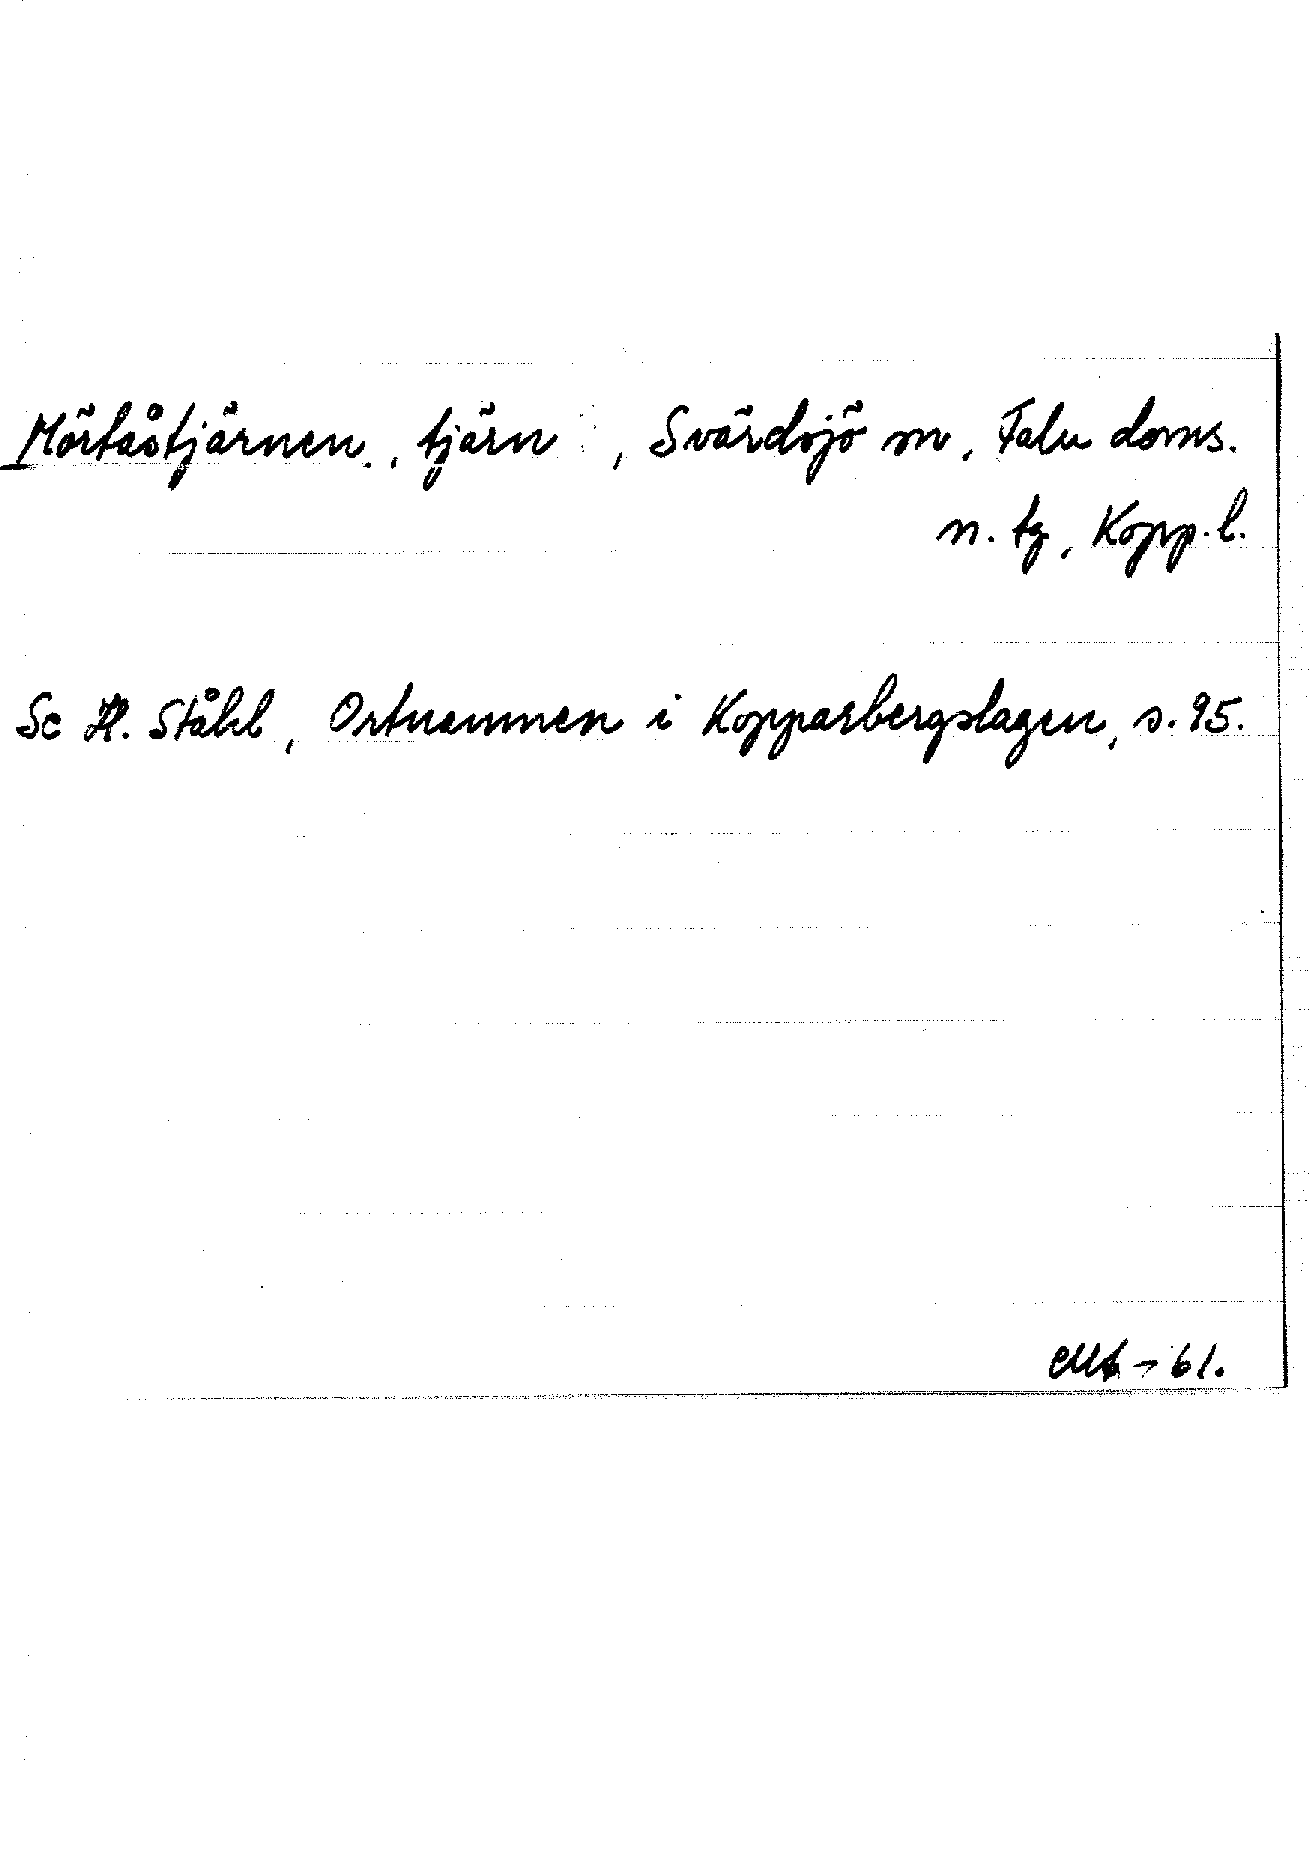 Mörtåstjärnen, tjärn, Svärdsjö sn, Falu doms.
n. tg, Kopp. l.
Se H. Ståhl, Ortnamnen i Kopparbergslagen, s. 95.
- 61.